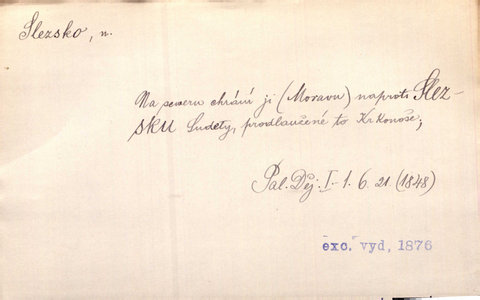 Slezsko, n.
Na severu chrání ji (Moravu) naproti Slez-
sku Sudety, prodlaužené to Krkonoše;
Pal. Děj. I-1. 6. 21. (1848)
exc. vyd, 1876